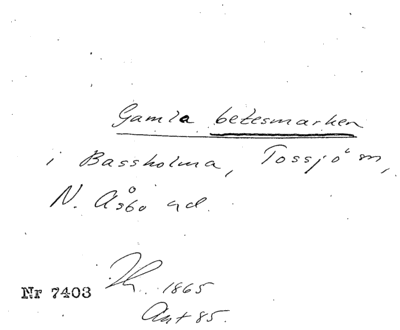 Gamla betesmarken
i Bassholma, Tossjö sn,
N. Åsbo hd.
Nr 7403
1865
Ant 85.